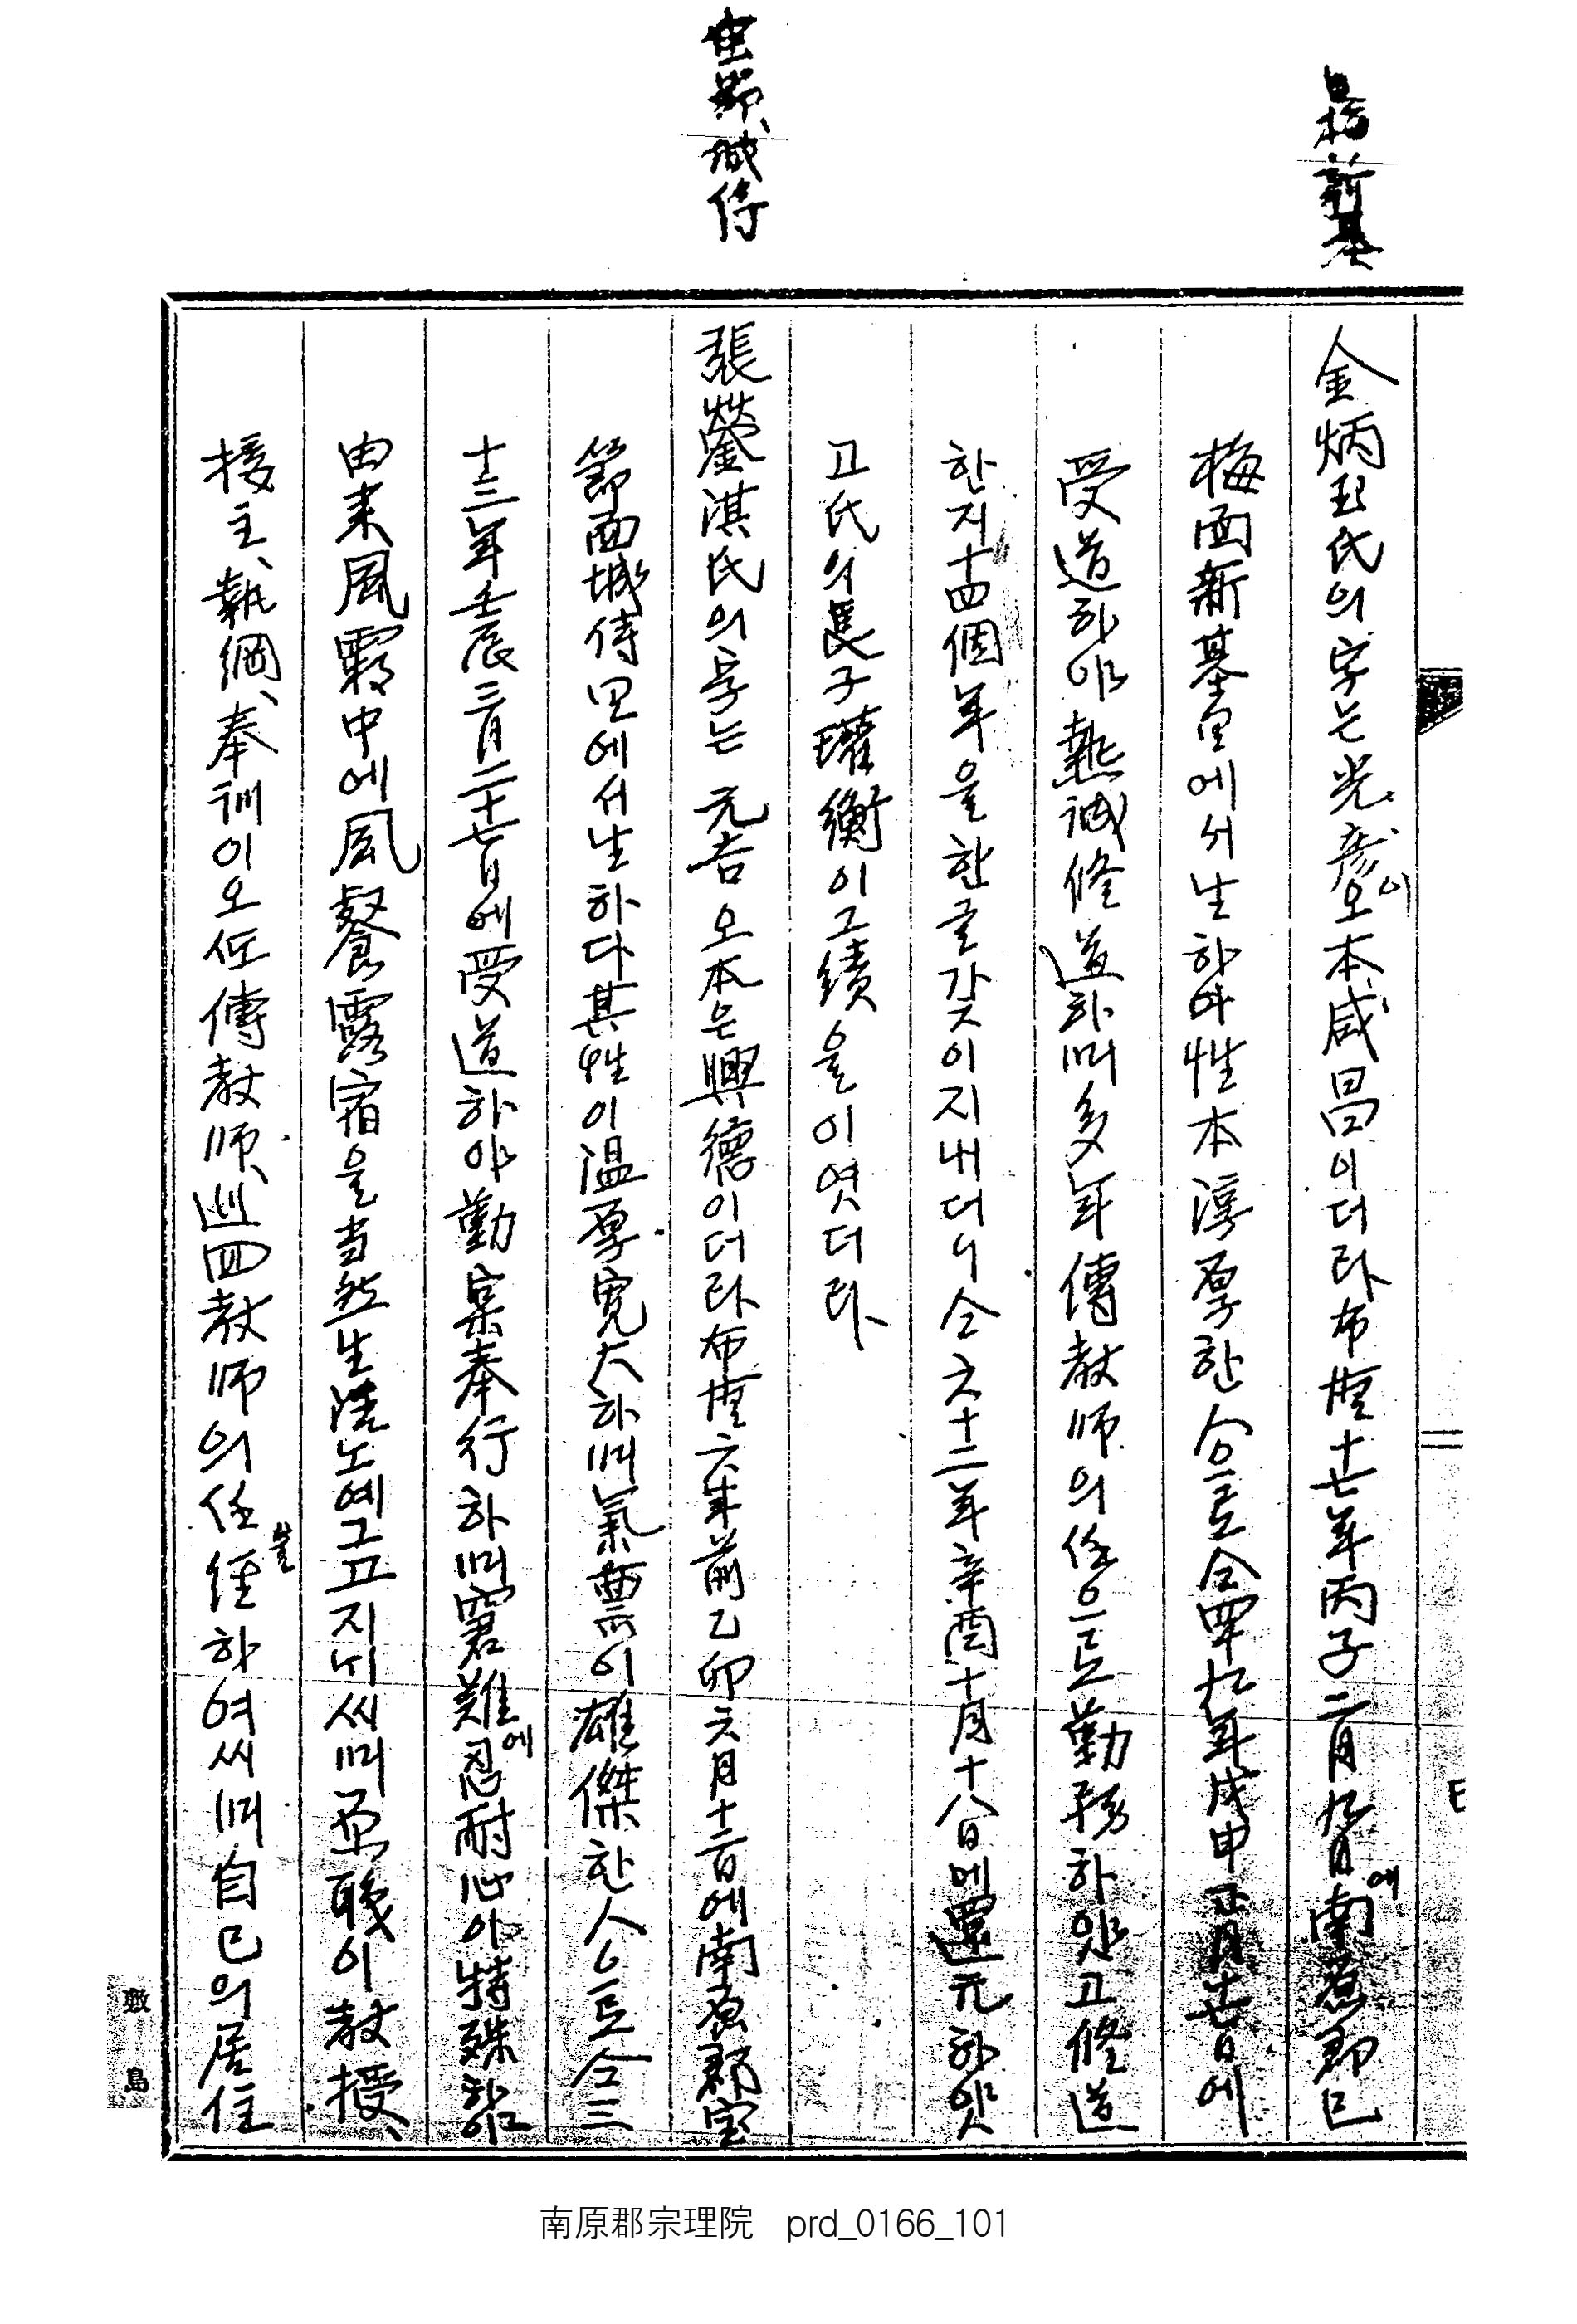 巳梅新基
金炳珏氏의字는光彦이오本咸昌이더라布德十七年丙子二月九日에南原郡巳
梅面新基里에서生하야性本淳厚한人으로仝四十九年戊申正月十七日에
受道하야熱誠修道하며多年傳敎师의任으로勤務하얏고修道
한지十四個年을한글갓이지내더니仝六十二年辛酉十月十八日에還元하얏
고氏의長子瓘衡이그績을이엿더라
宝節、城侍
張鎣淇氏의字는元吉오本은興德이더라布德六年前乙卯六月十二日에南原郡宝
節面城侍里에서生하다其性이温厚寬大하며氣豊이雄傑한人으로仝三
十三年壬辰三月二十七日에受道하야勤实奉行하며窘難에忍耐心이特殊하야
由来風霜中에風餐露宿을当然生活노예그고지뉘씨며원職이敎授、
接主、執綱、奉訓이오仝傳敎师、巡回敎师의任을經하여씨며自己의居住
敷島
南原郡宗理院 prd_0166_101